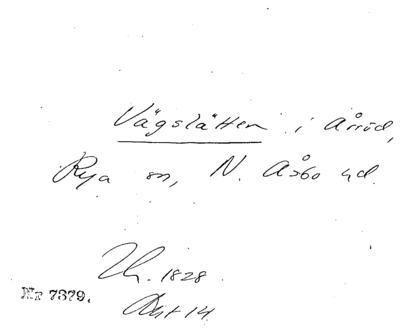 Vägslätten i Årröd,
Rya sn, N. Åsbo hd.
1828
Nr 7379.
14